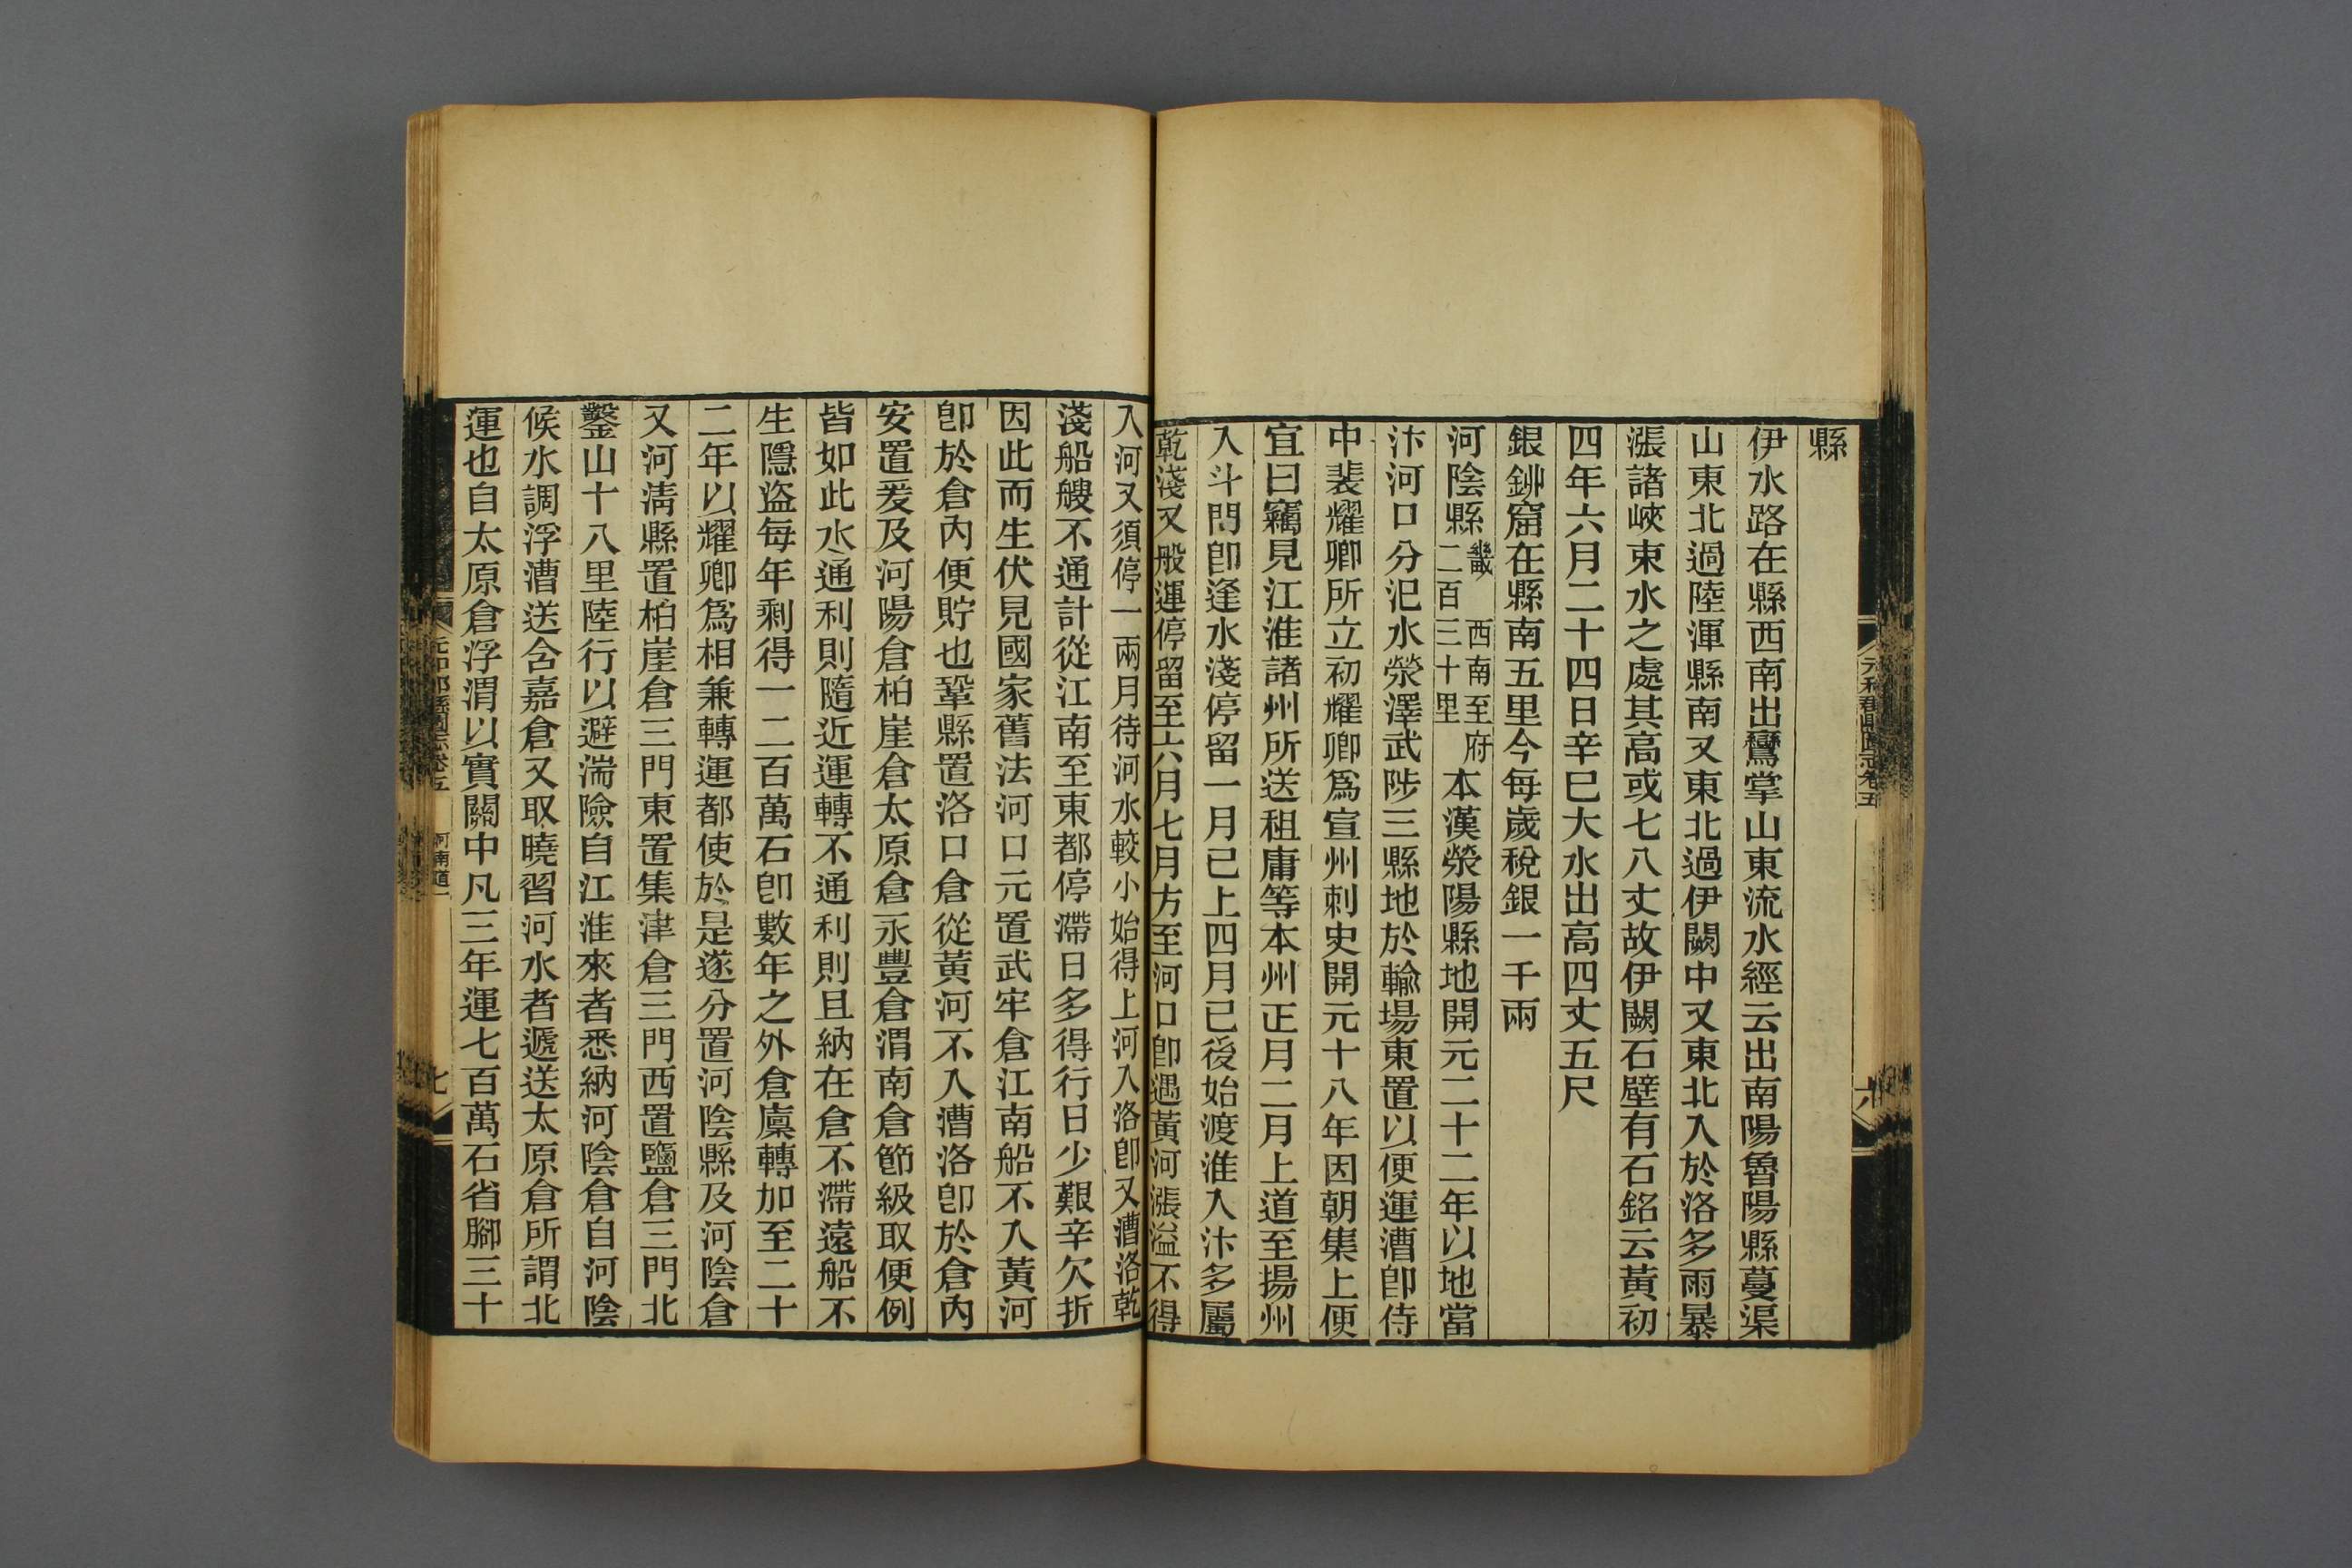 縣
伊水路在縣西南出鸞掌山東流水經云出南陽魯陽縣蔓渠
山東北過陸渾縣南又東北過伊闕中又東北入於洛多雨暴
漲諸峽東水之處其高或七八丈故伊闕石壁有石銘云黃初
四年六月二十四日辛巳大水出高四丈五尺
銀鉚窟在縣南五里今每歲稅銀一千兩
河陰縣畿 西南至府二百三十里 本漢滎陽縣地開元二十二年以地當
汴河口分汜水滎澤武陟三縣地於輸場東置以便運漕卽侍
中裴耀卿所立初耀卿爲宣州刺史開元十八年因朝集上便
宜曰竊見江淮諸州所送租庸等本州正月二月上道至揚州
入斗門卽逢水淺停留一月已上四月已後始渡淮入汴多屬
乾淺又般運停留至六月七月方至河口卽遇黃河漲溢不得
入河又須停一兩月待河水較小始得上河入洛卽又漕洛乾
淺船艘不通計從江南至東都停滯日多得行日少艱辛欠折
因此而生伏見國家舊法河口元置武牢倉江南船不入黃河
卽於倉內便貯也鞏縣置洛口倉從黃河不入漕洛卽於倉內
安置爰及河陽倉柏崖倉太原倉永豐倉渭南倉節級取便例
皆如此水通利則隨近運轉不通利則且納在倉不滯遠船不
生隱盜每年剩得一二百萬石卽數年之外倉廩轉加至二十
二年以耀卿爲相兼轉運都使於是遂分置河陰縣及河陰倉
又河淸縣置柏崖倉三門東置集津倉三門西置鹽倉三門北
鑿山十八里陸行以避湍險自江淮來者悉納河陰倉自河陰
候水調浮漕送含嘉倉又取曉習河水者遞送太原倉所謂北
運也自太原倉浮渭以實關中凡三年運七百萬石省腳三十
元和郡縣圖志卷五
河南道一
七
六